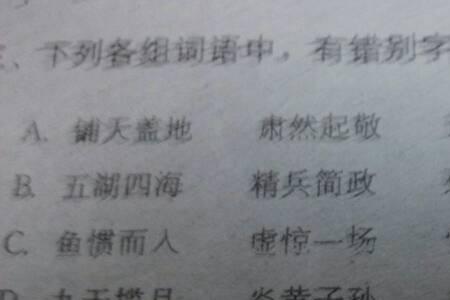 、下列各组词语中，有错别字
A. 铺天盖地 肃然起敬
B. 五湖四海 精兵简政
C. 鱼惯而入 虚惊一场
D. 九天揽月 炎黄子孙